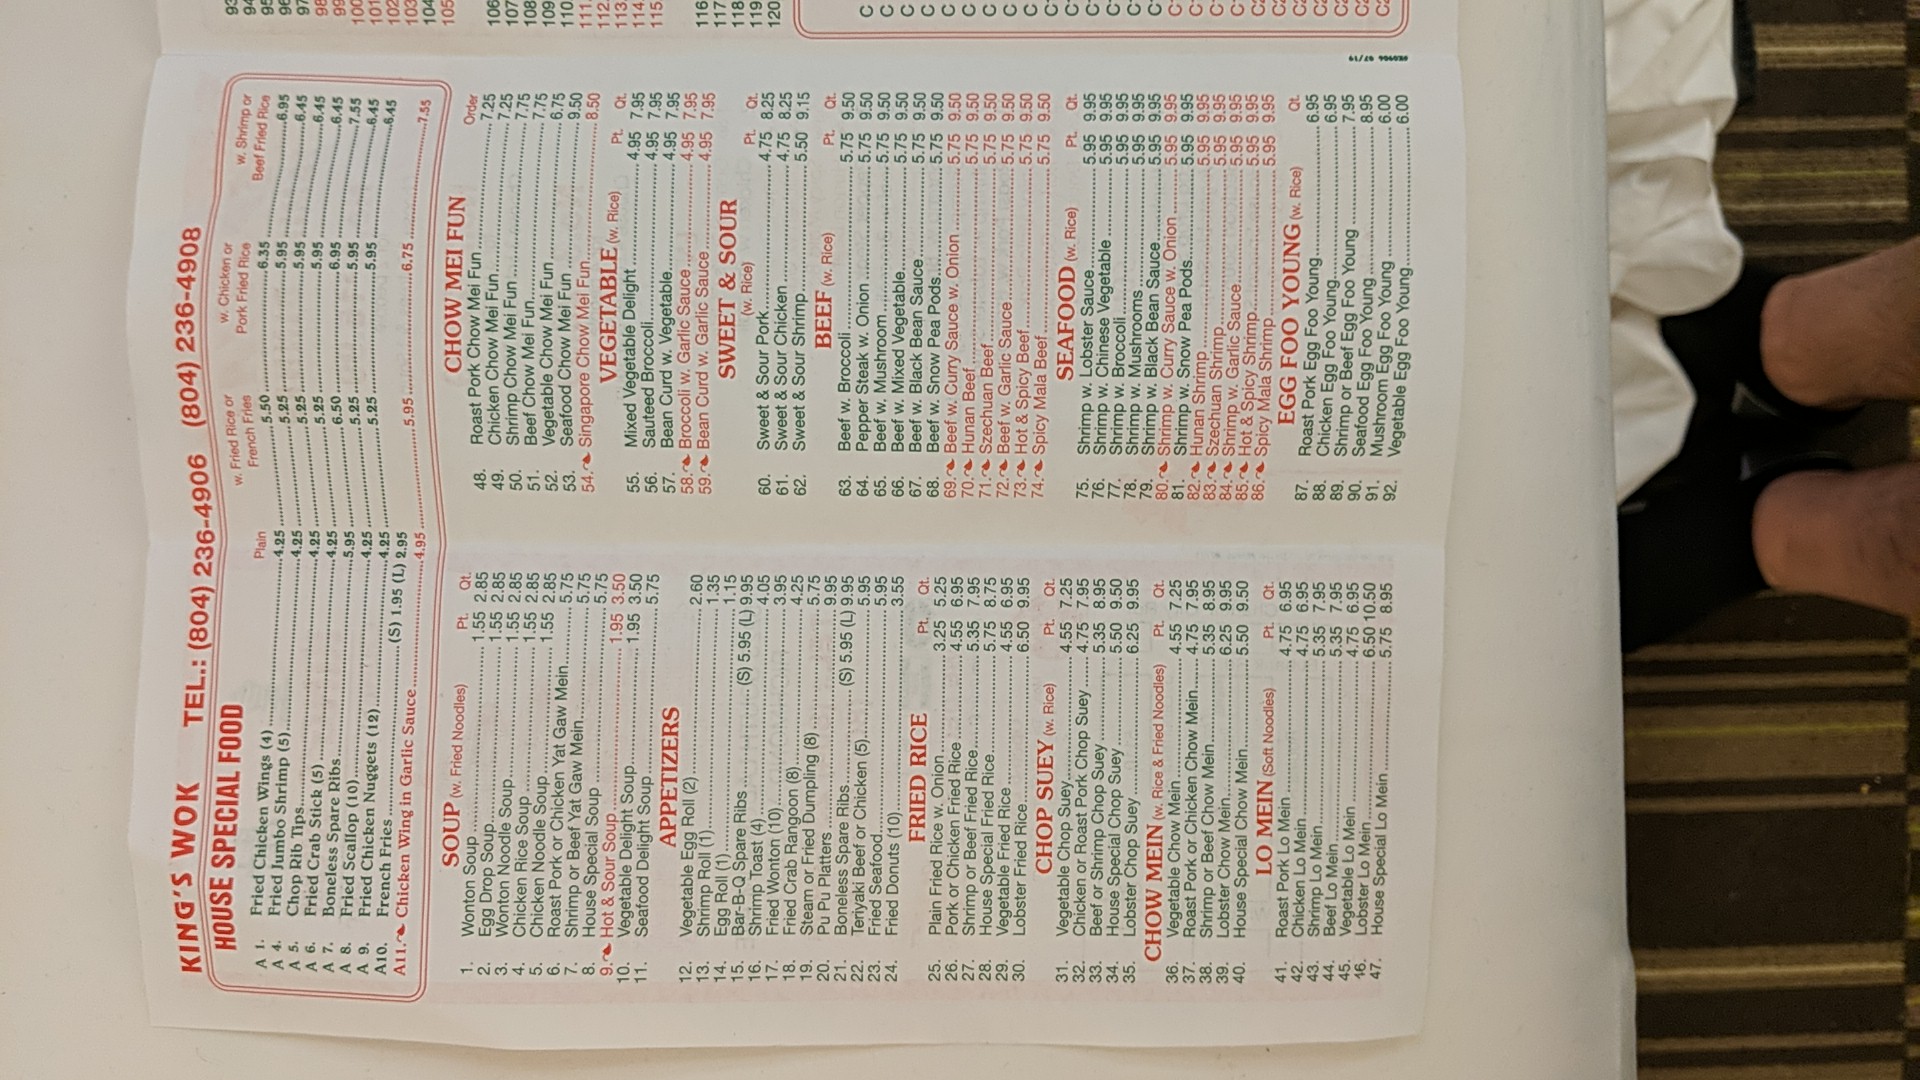 KING'S WOK TEL.: (804) 236-4906 (804) 236-4908
HOUSE SPECIAL FOOD
Plain w. Fried Rice or French Fries w. Chicken or Pork Fried Rice w. Shrimp or Beef Fried Rice
A 1. Fried Chicken Wings (4) 4.25 5.50 6.35 6.95
A 4. Fried Jumbo Shrimp (5) 4.25 5.25 5.95 6.45
A 5. Chop Rib Tips 4.25 5.25 5.95 6.45
A 6. Fried Crab Stick (5) 4.25 5.25 5.95 6.45
A 7. Boneless Spare Ribs 5.95 6.50 6.95 7.55
A 8. Fried Scallop (10) 4.25 5.25 5.95 6.45
A 9. Fried Chicken Nuggets (12) 4.25 5.25 5.95 6.45
A10. French Fries (S) 1.95 (L) 2.95
A11. Chicken Wing in Garlic Sauce 4.95 5.95 6.75 7.55
SOUP (w. Fried Noodles) Pt. Qt.
1. Wonton Soup 1.55 2.85
2. Egg Drop Soup 1.55 2.85
3. Wonton Noodle Soup 1.55 2.85
4. Chicken Rice Soup 1.55 2.85
5. Chicken Noodle Soup 1.55 2.85
6. Roast Pork or Chicken Yat Gaw Mein 5.75
7. Shrimp or Beef Yat Gaw Mein 5.75
8. House Special Soup 5.75
9. Hot & Sour Soup 1.95 3.50
10. Vegetable Delight Soup 1.95 3.50
11. Seafood Delight Soup 5.75
APPETIZERS
12. Vegetable Egg Roll (2) 2.60
13. Shrimp Roll (1) 1.35
14. Egg Roll (1) 1.15
15. Bar-B-Q Spare Ribs (S) 5.95 (L) 9.95
16. Shrimp Toast (4) 4.05
17. Fried Wonton (10) 3.95
18. Fried Crab Rangoon (8) 4.25
19. Steam or Fried Dumpling (8) 5.75
20. Pu Pu Platters 9.95
21. Boneless Spare Ribs (S) 5.95 (L) 9.95
22. Teriyaki Beef or Chicken (5) 5.95
23. Fried Seafood 5.95
24. Fried Donuts (10) 3.55
FRIED RICE Pt. Qt.
25. Plain Fried Rice w. Onion 3.25 5.25
26. Pork or Chicken Fried Rice 4.55 6.95
27. Shrimp or Beef Fried Rice 5.35 7.95
28. House Special Fried Rice 5.75 8.75
29. Vegetable Fried Rice 4.55 6.95
30. Lobster Fried Rice 6.50 9.95
CHOP SUEY (w. Rice) Pt. Qt.
31. Vegetable Chop Suey 4.55 7.25
32. Chicken or Roast Pork Chop Suey 4.75 7.95
33. Beef or Shrimp Chop Suey 5.35 8.95
34. House Special Chop Suey 5.50 9.50
35. Lobster Chop Suey 6.25 9.95
CHOW MEIN (w. Rice & Fried Noodles) Pt. Qt.
36. Vegetable Chow Mein 4.55 7.25
37. Roast Pork or Chicken Chow Mein 4.75 7.95
38. Shrimp or Beef Chow Mein 5.35 8.95
39. Lobster Chow Mein 6.25 9.95
40. House Special Chow Mein 5.50 9.50
LO MEIN (Soft Noodles) Pt. Qt.
41. Roast Pork Lo Mein 4.75 6.95
42. Chicken Lo Mein 4.75 6.95
43. Shrimp Lo Mein 5.35 7.95
44. Beef Lo Mein 5.35 7.95
45. Vegetable Lo Mein 4.75 6.95
46. Lobster Lo Mein 6.50 10.50
47. House Special Lo Mein 5.75 8.95
CHOW MEI FUN Order
48. Roast Pork Chow Mei Fun 7.25
49. Chicken Chow Mei Fun 7.25
50. Shrimp Chow Mei Fun 7.75
51. Beef Chow Mei Fun 7.75
52. Vegetable Chow Mei Fun 6.75
53. Seafood Chow Mei Fun 9.50
54. Singapore Chow Mei Fun 8.50
VEGETABLE (w. Rice) Pt. Qt.
55. Mixed Vegetable Delight 4.95 7.95
56. Sauteed Broccoli 4.95 7.95
57. Bean Curd w. Vegetable 4.95 7.95
58. Broccoli w. Garlic Sauce 4.95 7.95
59. Bean Curd w. Garlic Sauce 4.95 7.95
SWEET & SOUR
(w. Rice) Pt. Qt.
60. Sweet & Sour Pork 4.75 8.25
61. Sweet & Sour Chicken 4.75 8.25
62. Sweet & Sour Shrimp 5.50 9.15
BEEF (w. Rice) Pt. Qt.
63. Beef w. Broccoli 5.75 9.50
64. Pepper Steak w. Onion 5.75 9.50
65. Beef w. Mushroom 5.75 9.50
66. Beef w. Mixed Vegetable 5.75 9.50
67. Beef w. Black Bean Sauce 5.75 9.50
68. Beef w. Snow Pea Pods 5.75 9.50
69. Beef w. Curry Sauce w. Onion 5.75 9.50
70. Hunan Beef 5.75 9.50
71. Szechuan Beef 5.75 9.50
72. Beef w. Garlic Sauce 5.75 9.50
73. Hot & Spicy Beef 5.75 9.50
74. Spicy Mala Beef 5.75 9.50
SEAFOOD (w. Rice) Pt. Qt.
75. Shrimp w. Lobster Sauce 5.95 9.95
76. Shrimp w. Chinese Vegetable 5.95 9.95
77. Shrimp w. Broccoli 5.95 9.95
78. Shrimp w. Mushrooms 5.95 9.95
79. Shrimp w. Black Bean Sauce 5.95 9.95
80. Shrimp w. Curry Sauce w. Onion 5.95 9.95
81. Shrimp w. Snow Pea Pods 5.95 9.95
82. Hunan Shrimp 5.95 9.95
83. Szechuan Shrimp 5.95 9.95
84. Shrimp w. Garlic Sauce 5.95 9.95
85. Hot & Spicy Shrimp 5.95 9.95
86. Spicy Mala Shrimp 5.95 9.95
EGG FOO YOUNG (w. Rice) Qt.
87. Roast Pork Egg Foo Young 6.95
88. Chicken Egg Foo Young 6.95
89. Shrimp or Beef Egg Foo Young 7.95
90. Seafood Egg Foo Young 8.95
91. Mushroom Egg Foo Young 6.00
92. Vegetable Egg Foo Young 6.00
93
94
95
96
97
98
99
100
101
102
103
104
105
106
107
108
109
110.
111.
112.
113.
114.
115.
116
117
118
119
120